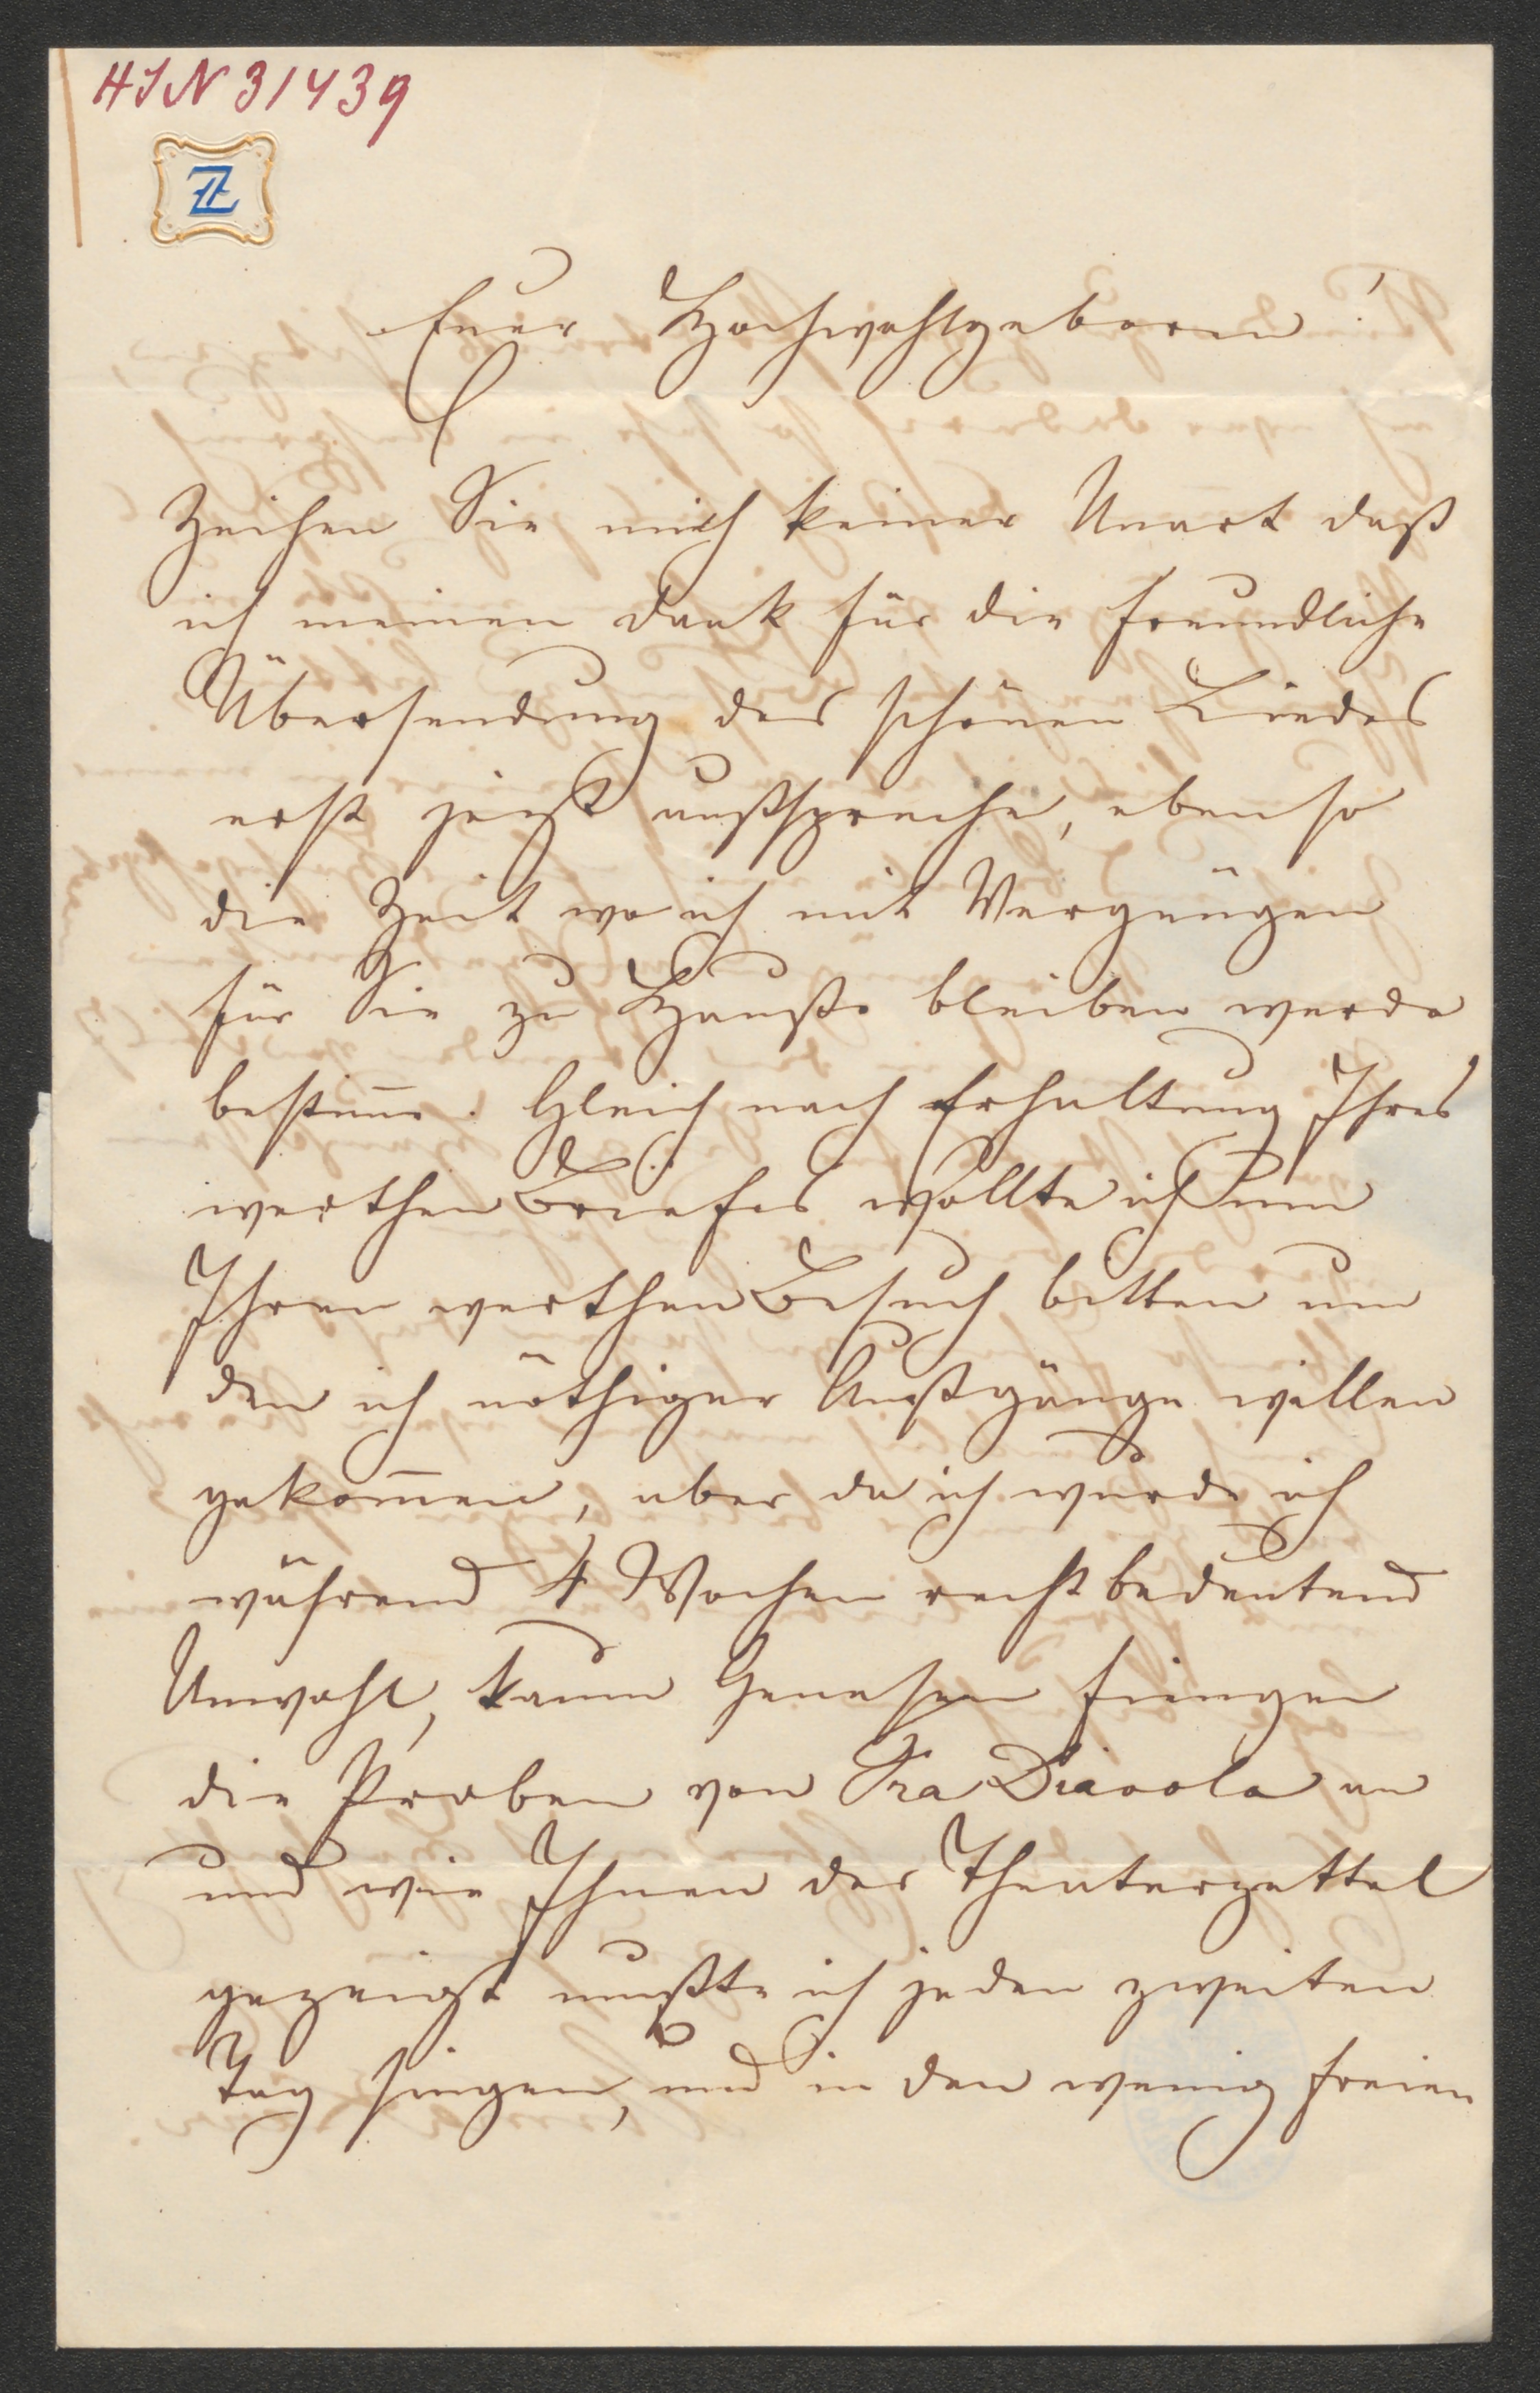 HIN 31439
Z
Euer Hochwohlgeboren!
Zeihen Sie mich keiner Unart daß
ich meinen Dank für die freundliche
Übersendung des schönen Liedes
erst jetzt außspreche, ebenso
die Zeit wo ich mit Vergnügen
für Sie zu Hauße bleiben werde
bestim̅e. Gleich nach Erhaltung Ihres
werthen Briefes wollte ich um
Ihren werthen Besuch bitten um
den ich nöthiger Außgänge willen
gekom̅en, aber da ich wurde ich
während 4 Wochen recht bedeutend
Unwohl, kaum Genesen fiengen
die Proben von Fra Diavolo an
und wie Ihnen der Theaterzettel
gezeigt mußte ich jeden zweiten
Tag singen, und in den wenig freien